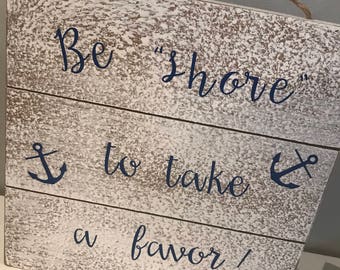 Be "shore"
to take
a favor!